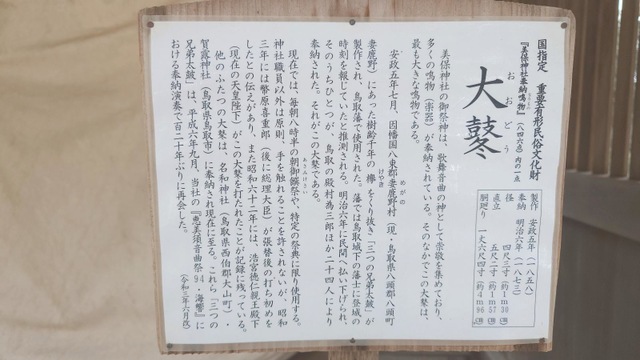 国指定 重要有形民俗文化財
『美保神社奉納鳴物』(八四六点)内の一点
おおどう
大鼕
製作 安政五年(一八五八)
奉納 明治六年(一八七三)
径 四尺三寸(約1m30㎝)
直立 五尺二寸(約1m57㎝)
胴廻り 一丈六尺四寸(約4m96㎝)
美保神社の御祭神は、歌舞音曲の神として崇敬を集めており、
多くの鳴物(楽器)が奉納されている。そのなかでこの大鼕は、
最も大きな鳴物である。
安政五年七月、因幡国八東郡妻鹿野村(現・鳥取県八頭郡八頭町
めがの
妻鹿野)にあった樹齢千年の欅をくり抜き「三つの兄弟太鼓」が
けやき
製作され、鳥取藩で使用された。藩では鳥取城下の藩士に登城の
時刻を報じていたと推測される。明治六年に民間へ払い下げられ、
そのうちひとつが、鳥取の殿村為三郎ほか二十四人により
奉納された。それがこの大鼕である。
現在では、毎朝八時半の朝御饌祭や、特定の祭典に限り使用する。
あさみけさい
神社職員以外は原則、手を触れることを許されないが、昭和
三年には幣原喜重郎(後に総理大臣)が張替後の打ち初めを
したとの伝えがあり、また昭和六十二年には、浩宮徳仁親王殿下
(現在の天皇陛下)がこの大鼕を打たれたことが記録に残っている。
他のふたつの大鼕は、名和神社(鳥取県西伯郡大山町)・
賀露神社(鳥取県鳥取市)に奉納され現在に至る。これら「三つの
兄弟太鼓」は、平成六年九月、当社の『恵美須音曲祭'94・海響』に
おける奉納演奏で百二十年ぶりに再会した。
(令和三年六月改)